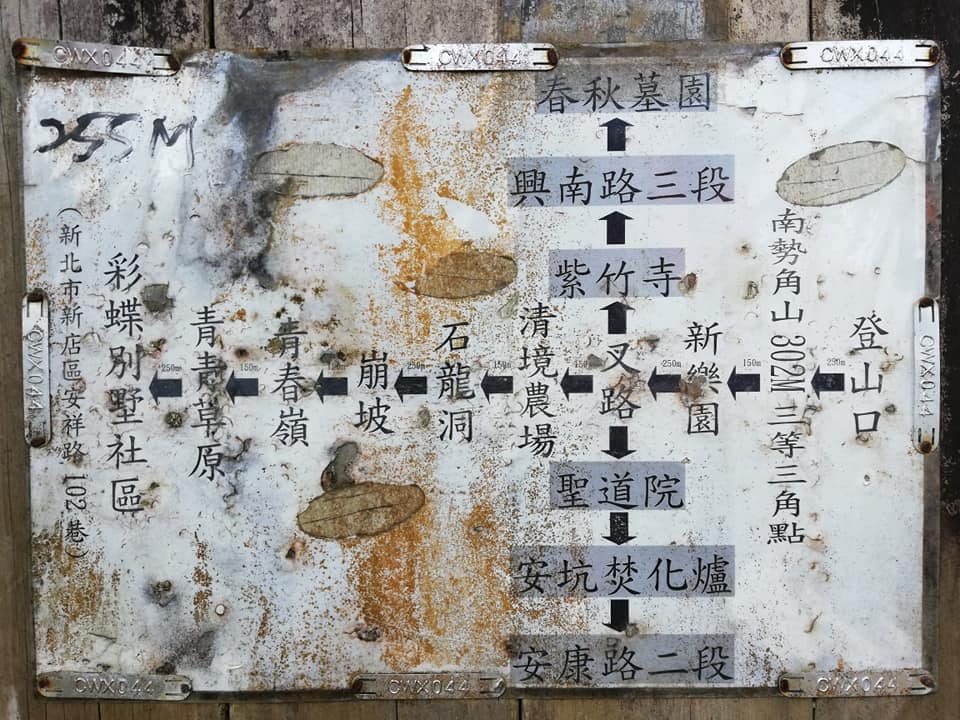 CWX044
CWX044
CWX044
255M
春秋墓園
興南路三段
紫竹寺
登山口
250m
南勢角山 302M 三等三角點
150m
新樂園
250m
叉路
450m
清境農場
150m
石龍洞
250m
崩坡
150m
青春嶺
150m
青青草原
250m
彩蝶別墅社區
(新北市新店區安祥路 102 巷)
聖道院
安坑焚化爐
安康路二段
CWX044
CWX044
CWX044
CWX044
CWX044